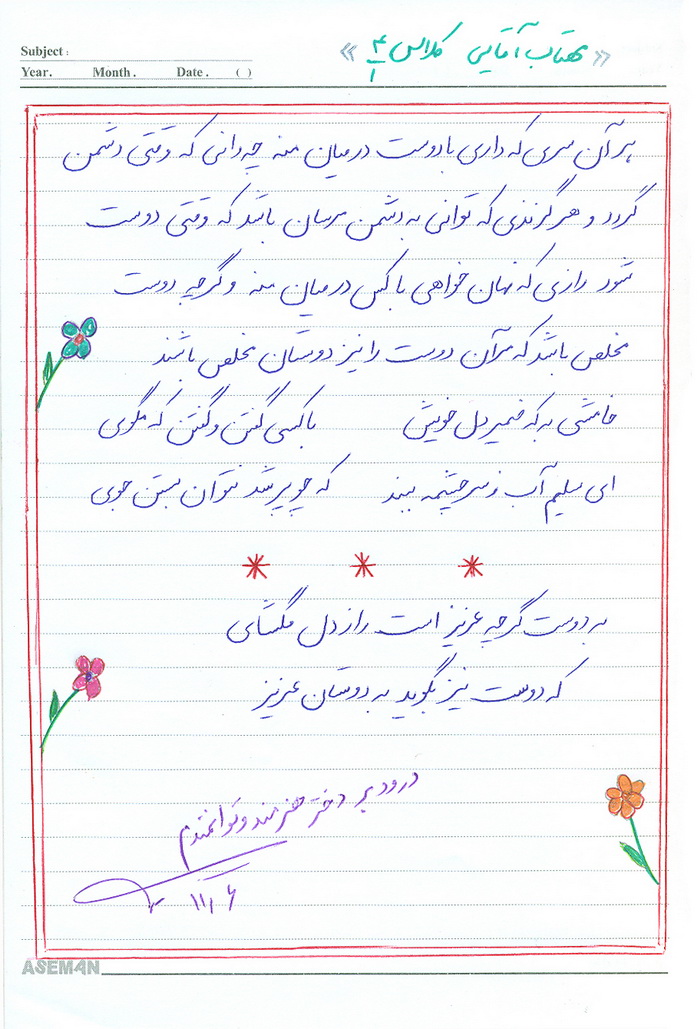 Subject :
Year. Month. Date. ( )
« مهتاب آقایی کلاس ۴/۱ »
هر آن سری که داری با دوست در میان منه چه دانی که وقتی دشمن
گردد و هر گزندی که توانی به دشمن مرسان باشد که وقتی دوست
شود رازی که نهان خواهی با کس در میان منه و گرچه دوست
مخلص باشد که مر آن دوست را نیز دوستان مخلص باشند
خامشی به که ضمیر دل خویش با کسی گفتن و گفتن که مگوی
ای سلیم آب ز سر چشمه ببند که چو پر شد نتوان بستن جوی
* * *
به دوست گرچه عزیز است راز دل مگشای
که دوست نیز بگوید به دوستان عزیز
درود بر دختر هنرمند و توانمندم
۱۱/۶
ASEMAN